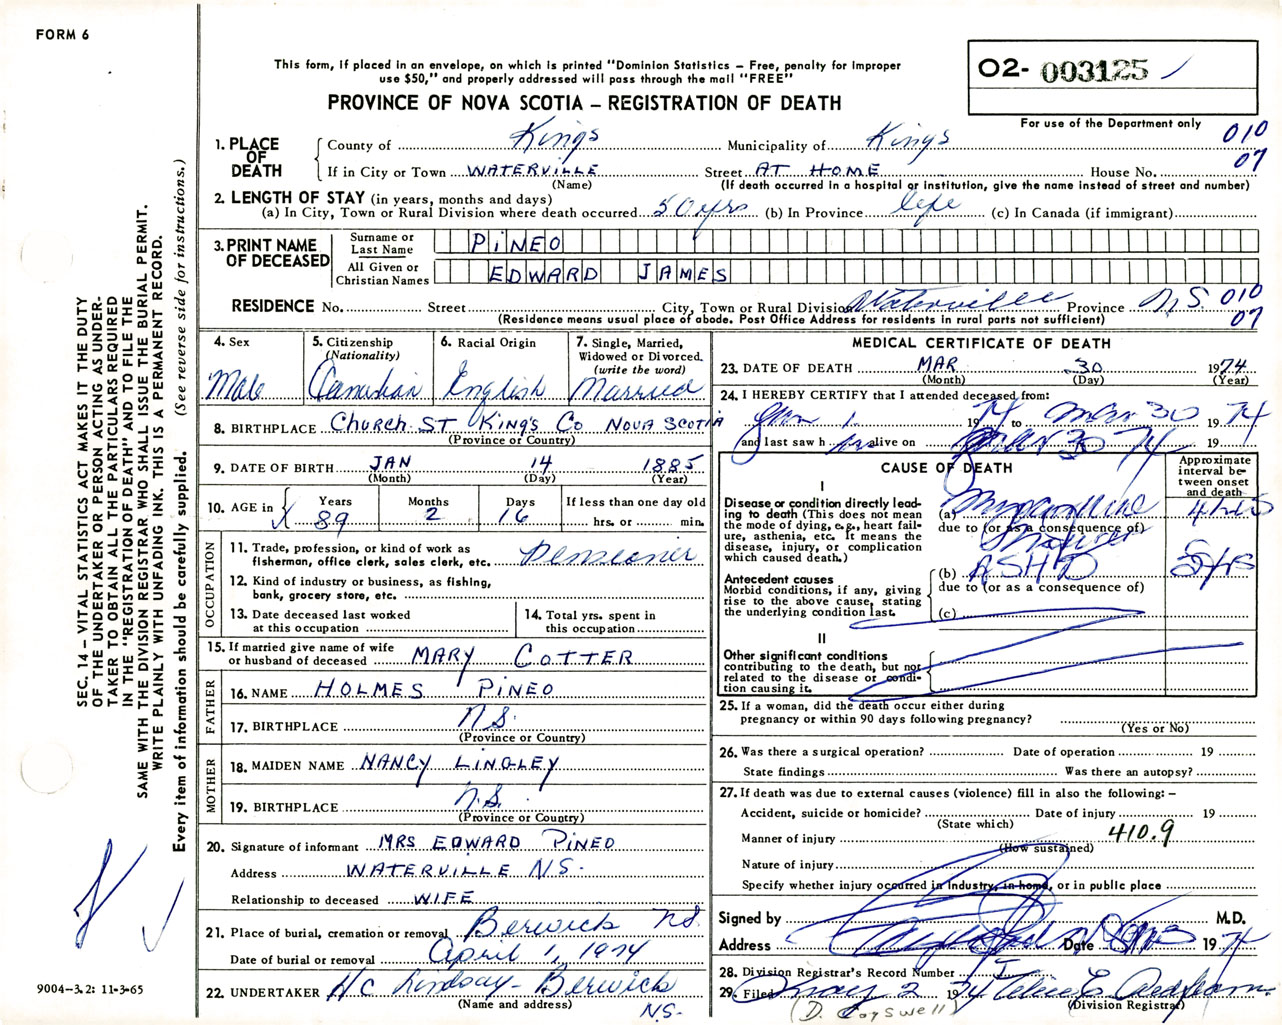 FORM 6
This form, if placed in an envelope, on which is printed "Dominion Statistics – Free, penalty for improper
use $50," and properly addressed will pass through the mail "FREE"
PROVINCE OF NOVA SCOTIA – REGISTRATION OF DEATH
O2- 003125
For use of the Department only
010
07
1. PLACE OF DEATH
County of Kings Municipality of Kings
If in City or Town WATERVILLE Street AT HOME House No.
(Name) (If death occurred in a hospital or institution, give the name instead of street and number)
2. LENGTH OF STAY (in years, months and days)
(a) In City, Town or Rural Division where death occurred 50 yrs (b) In Province life (c) In Canada (if immigrant)
3. PRINT NAME OF DECEASED
Surname or Last Name PINEO
All Given or Christian Names EDWARD JAMES
RESIDENCE No. Street City, Town or Rural Division Waterville Province N.S. 010
07
(Residence means usual place of abode. Post Office Address for residents in rural parts not sufficient)
4. Sex
Male
5. Citizenship
(Nationality)
Canadian
6. Racial Origin
English
7. Single, Married,
Widowed or Divorced.
(write the word)
Married
8. BIRTHPLACE CHURCH ST KING'S CO NOVA SCOTIA
(Province or Country)
9. DATE OF BIRTH JAN 14 1885
(Month) (Day) (Year)
10. AGE in
Years Months Days If less than one day old
89 2 16 hrs. or min.
OCCUPATION
11. Trade, profession, or kind of work as
fisherman, office clerk, sales clerk, etc. Pensioner
12. Kind of industry or business, as fishing,
bank, grocery store, etc.
13. Date deceased last worked
at this occupation
14. Total yrs. spent in
this occupation
15. If married give name of wife
or husband of deceased MARY COTTER
FATHER
16. NAME HOLMES PINEO
17. BIRTHPLACE N.S.
(Province or Country)
MOTHER
18. MAIDEN NAME NANCY LINGLEY
19. BIRTHPLACE N.S.
(Province or Country)
20. Signature of informant MRS EDWARD PINEO
Address WATERVILLE N.S.
Relationship to deceased WIFE
21. Place of burial, cremation or removal Berwick NS.
Date of burial or removal April 1, 1974
22. UNDERTAKER H C Lindsay - Berwick
(Name and address) N.S.
MEDICAL CERTIFICATE OF DEATH
23. DATE OF DEATH MAR 30 1974
(Month) (Day) (Year)
24. I HEREBY CERTIFY that I attended deceased from:
Jan 1 1974 to Mar 30 1974
and last saw h im alive on Mar 30 74 19
CAUSE OF DEATH
Approximate
interval be-
tween onset
and death
I
Disease or condition directly lead-
ing to death (This does not mean
the mode of dying, e.g., heart fail-
ure, asthenia, etc. It means the
disease, injury, or complication
which caused death.)
(a) Myocardial
due to (or as a consequence of)
Antecedent causes
Morbid conditions, if any, giving
rise to the above cause, stating
the underlying condition last.
(b) ASHD
due to (or as a consequence of)
(c)
II
Other significant conditions
contributing to the death, but not
related to the disease or condi-
tion causing it.
25. If a woman, did the death occur either during
pregnancy or within 90 days following pregnancy?
(Yes or No)
26. Was there a surgical operation? Date of operation 19
State findings Was there an autopsy?
27. If death was due to external causes (violence) fill in also the following: –
Accident, suicide or homicide? Date of injury 19
(State which)
Manner of injury 410.9
(How sustained)
Nature of injury
Specify whether injury occurred in industry, in home, or in public place
Signed by M.D.
Address Date 1974
28. Division Registrar's Record Number
29. Filed May 2 1974
(Division Registrar)
(D. Coyswell)
SEC. 14 – VITAL STATISTICS ACT MAKES IT THE DUTY
OF THE UNDERTAKER OR PERSON ACTING AS UNDER-
TAKER TO OBTAIN ALL THE PARTICULARS REQUIRED
IN THE "REGISTRATION OF DEATH" AND TO FILE THE
SAME WITH THE DIVISION REGISTRAR WHO SHALL ISSUE THE BURIAL PERMIT.
WRITE PLAINLY WITH UNFADING INK. THIS IS A PERMANENT RECORD.
Every item of information should be carefully supplied. (See reverse side for instructions.)
9004-3.2: 11-3-65